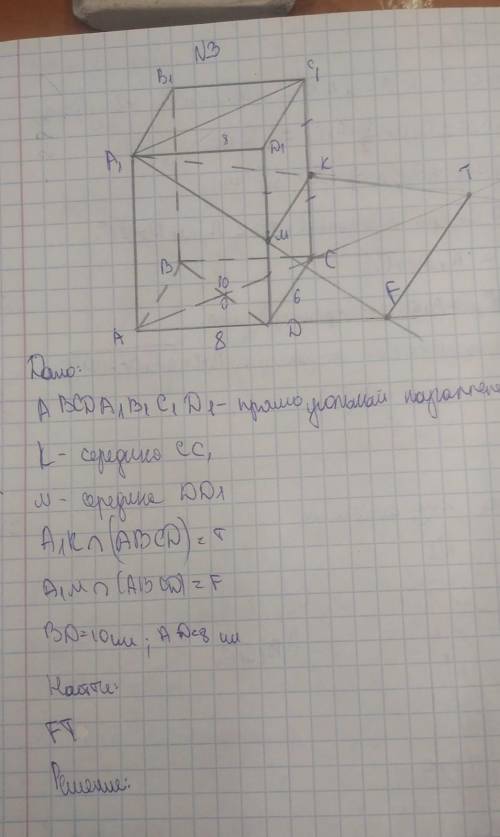 N3
B₁
C₁
A₁
8
D₁
K
T
M
B
10
C
O
6
F
A
8
D
Дано:
ABCDA₁B₁C₁D₁ - прямоугольный
K - середина CC₁
M - середина DD1
A₁K∩(ABCD)=T
A₁M∩(ABCD)=F
BD=10см; AD=8 см
Найти:
FT
Решение: